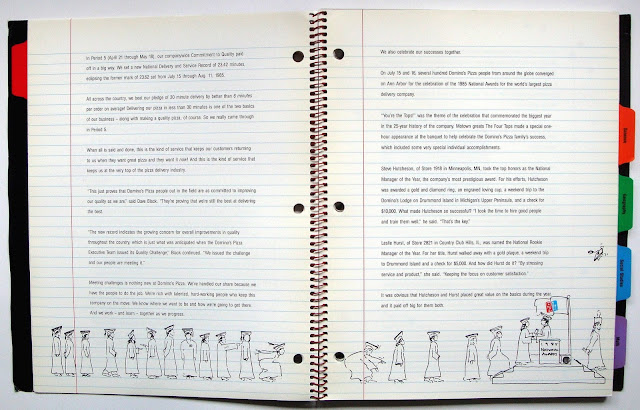 In Period 5 (April 21 through May 18), our companywide Commitment to Quality paid
off in a big way. We set a new National Delivery and Service Record of 23.42 minutes,
eclipsing the former mark of 23.52 set from July 15 through Aug. 11, 1985.
All across the country, we beat our pledge of 30 minute delivery by better than 6 minutes
per order on average! Delivering our pizza in less than 30 minutes is one of the two basics
of our business – along with making a quality pizza, of course. So we really came through
in Period 5.
When all is said and done, this is the kind of service that keeps our customers returning
to us when they want great pizza and they want it now! And this is the kind of service that
keeps us at the very top of the pizza delivery industry.
"This just proves that Domino's Pizza people out in the field are as committed to improving
our quality as we are," said Dave Black. "They're proving that we're still the best at delivering
the best.
"The new record indicates the growing concern for overall improvements in quality
throughout the country, which is just what was anticipated when the Domino's Pizza
Executive Team issued its Quality Challenge," Black continued. "We issued the challenge
and our people are meeting it."
Meeting challenges is nothing new at Domino's Pizza. We've handled our share because we
have the people to do the job. We're rich with talented, hard-working people who keep this
company on the move. We know where we want to be and how we're going to get there.
And we work – and learn – together as we progress.
We also celebrate our successes together.
On July 15 and 16, several hundred Domino's Pizza people from around the globe converged
on Ann Arbor for the celebration of the 1985 National Awards for the world's largest pizza
delivery company.
"You're the Tops!" was the theme of the celebration that commemorated the biggest year
in the 25-year history of the company. Motown greats The Four Tops made a special one-
hour appearance at the banquet to help celebrate the Domino's Pizza family's success,
which included some very special individual accomplishments.
Steve Hutcheson, of Store 1918 in Minneapolis, MN, took the top honors as the National
Manager of the Year, the company's most prestigious award. For his efforts, Hutcheson
was awarded a gold and diamond ring, an engraved loving cup, a weekend trip to the
Domino's Lodge on Drummond Island in Michigan's Upper Peninsula, and a check for
$10,000. What made Hutcheson so successful? "I took the time to hire good people
and train them well," he said. "That's the key."
Leslie Hurst, of Store 2821 in Country Club Hills, IL, was named the National Rookie
Manager of the Year. For her title, Hurst walked away with a gold plaque, a weekend trip
to Drummond Island and a check for $5,000. And how did Hurst do it? "By stressing
service and product," she said. "Keeping the focus on customer satisfaction."
It was obvious that Hutcheson and Hurst placed great value on the basics during the year,
and it paid off big for them both.
National
Awards
Science
Geography
Social Studies
Math